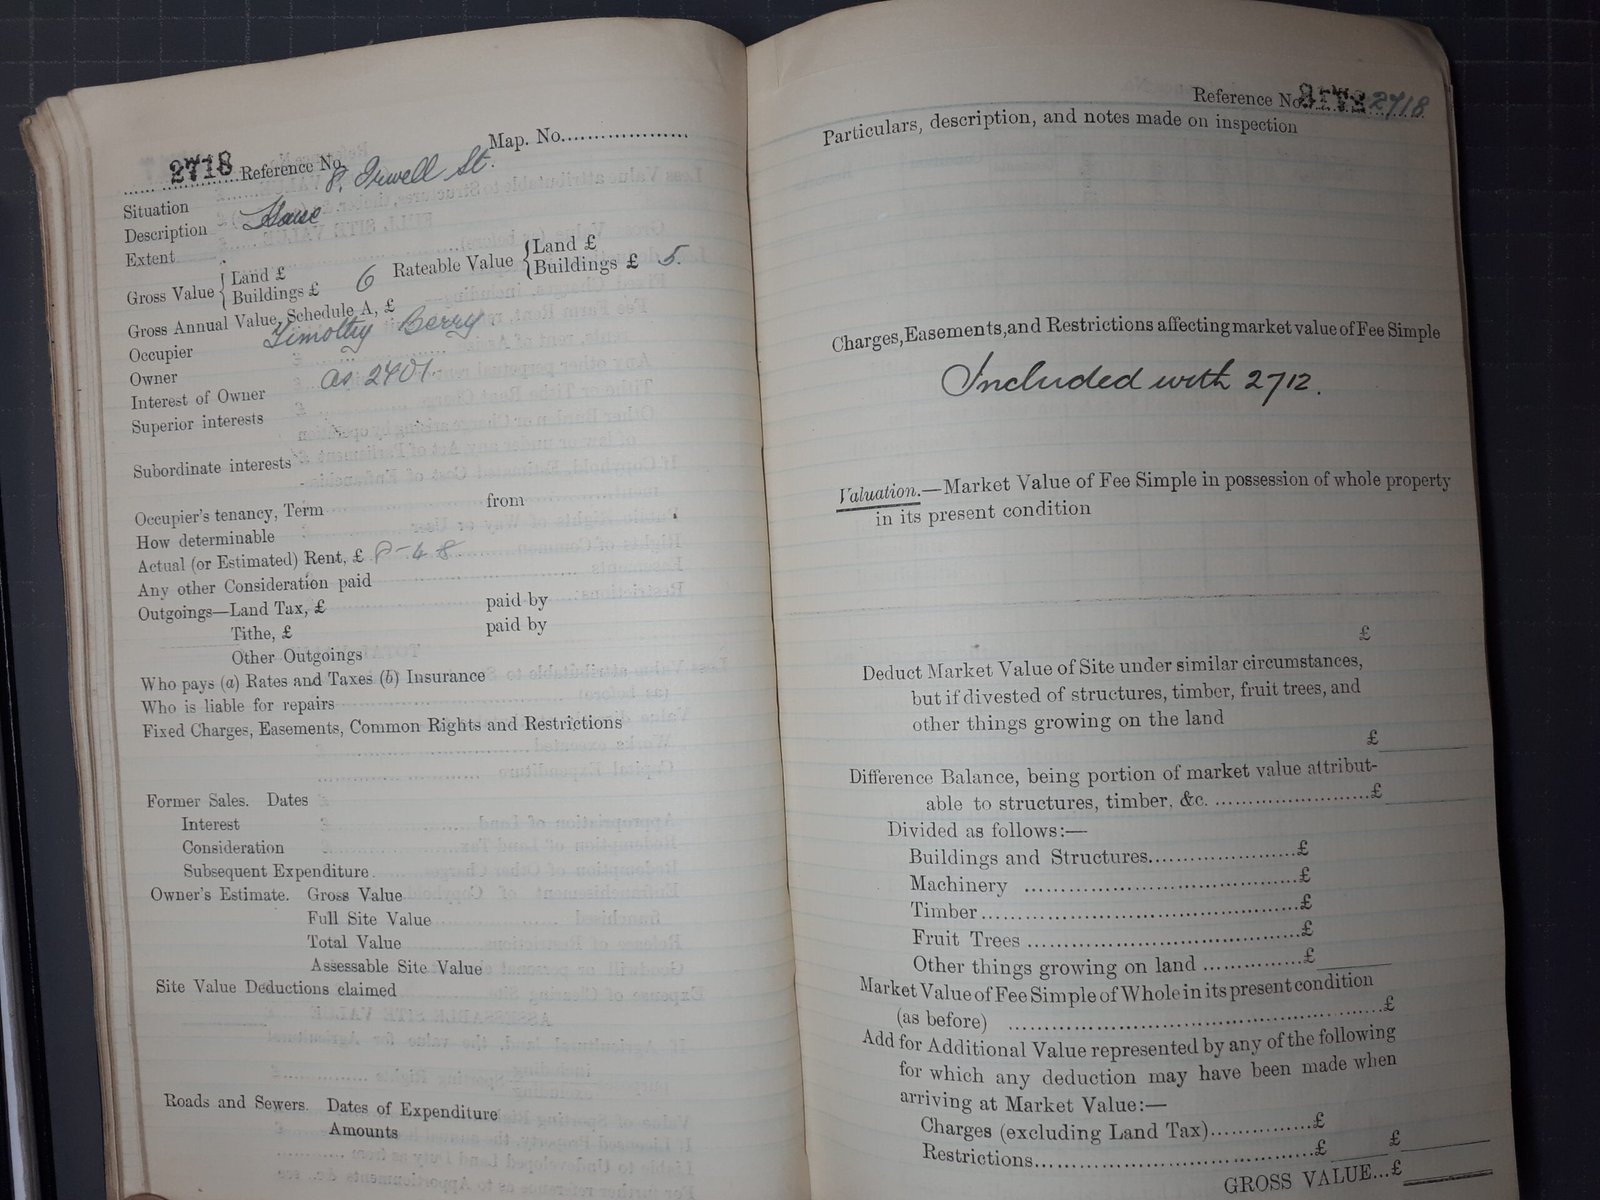 Map. No...................
2718 Reference No. 8. Irwell St.
Situation
Description House
Extent
Gross Value { Land £ Buildings £ 6 Rateable Value { Land £ Buildings £ 5.
Gross Annual Value, Schedule A, £
Occupier Timothy Berry
Owner as 2401.
Interest of Owner
Superior interests
Subordinate interests
Occupier's tenancy, Term from
How determinable
Actual (or Estimated) Rent, £
Any other Consideration paid
Outgoings—Land Tax, £ paid by
Tithe, £ paid by
Other Outgoings
Who pays (a) Rates and Taxes (b) Insurance
Who is liable for repairs
Fixed Charges, Easements, Common Rights and Restrictions
Former Sales. Dates
Interest
Consideration
Subsequent Expenditure
Owner's Estimate. Gross Value
Full Site Value
Total Value
Assessable Site Value
Site Value Deductions claimed
Roads and Sewers. Dates of Expenditure
Amounts
Reference No. 2718
Particulars, description, and notes made on inspection
Charges, Easements, and Restrictions affecting market value of Fee Simple
Included with 2712.
Valuation.—Market Value of Fee Simple in possession of whole property
in its present condition
£
Deduct Market Value of Site under similar circumstances,
but if divested of structures, timber, fruit trees, and
other things growing on the land
£
Difference Balance, being portion of market value attribut-
able to structures, timber, &c. ........................£
Divided as follows:—
Buildings and Structures......................£
Machinery ........................................£
Timber...............................................£
Fruit Trees ........................................£
Other things growing on land ...............£
Market Value of Fee Simple of Whole in its present condition
(as before) ........................................................£
Add for Additional Value represented by any of the following
for which any deduction may have been made when
arriving at Market Value:—
Charges (excluding Land Tax)...............£
Restrictions..........................................£ £
GROSS VALUE...£